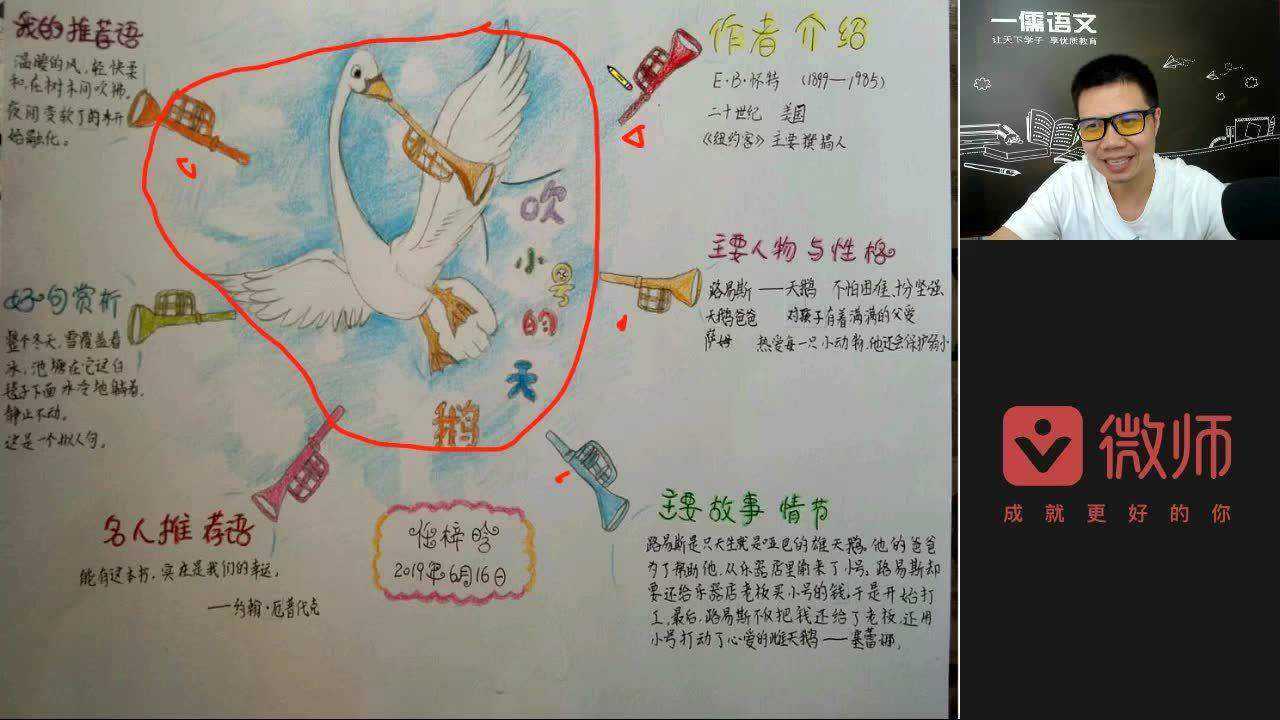 我的推荐语
温暖的风,轻快柔
和,在树木间吹拂,
夜间变软了的木开
始融化。
好句赏析
整个冬天,雪覆盖着
冰,池塘在它这白
毯子下面冰冷地躺着,
静止不动。
这是一个拟人句。
名人推荐语
能有这本书,实在是我们的幸运。
——约翰·厄普代克
吹小号的天鹅
任梓晗
2019年6月16日
作者介绍
E·B·怀特 (1899—1985)
二十世纪 美国
《纽约客》主要撰稿人
主要人物与性格
路易斯——天鹅 不怕困难、十分坚强
天鹅爸爸 对孩子有着满满的父爱
萨姆 热爱每一只小动物,他还会保护弱小
主要故事情节
路易斯是只天生就是哑巴的雄天鹅。他的爸爸
为了帮助他,从乐器店里偷来了小号。路易斯却
要还给乐器店老板买小号的钱,于是开始打
工。最后,路易斯不仅把钱还给了老板,还用
小号打动了心爱的雌天鹅——塞蕾娜。
一儒语文
让天下学子 享优质教育
微师
成就更好的你